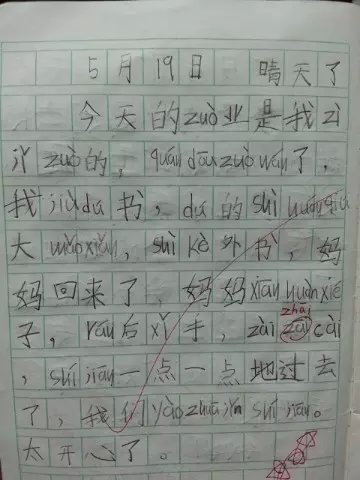 5月19日 晴天了
今天的zuò业是我zì
jǐ zuò的，quán dōu zuò wán了，
我jiù dú书，dú的shì huán qiú
大mào xiǎn，shì kè外书，妈
妈回来了，妈妈xiān huàn xié
子，rán后xǐ手，zài
zhāi
zāi cài
，shí jiān一点一点地过去
了，我们yào zhuā jǐn shí jiān。
太开心了。